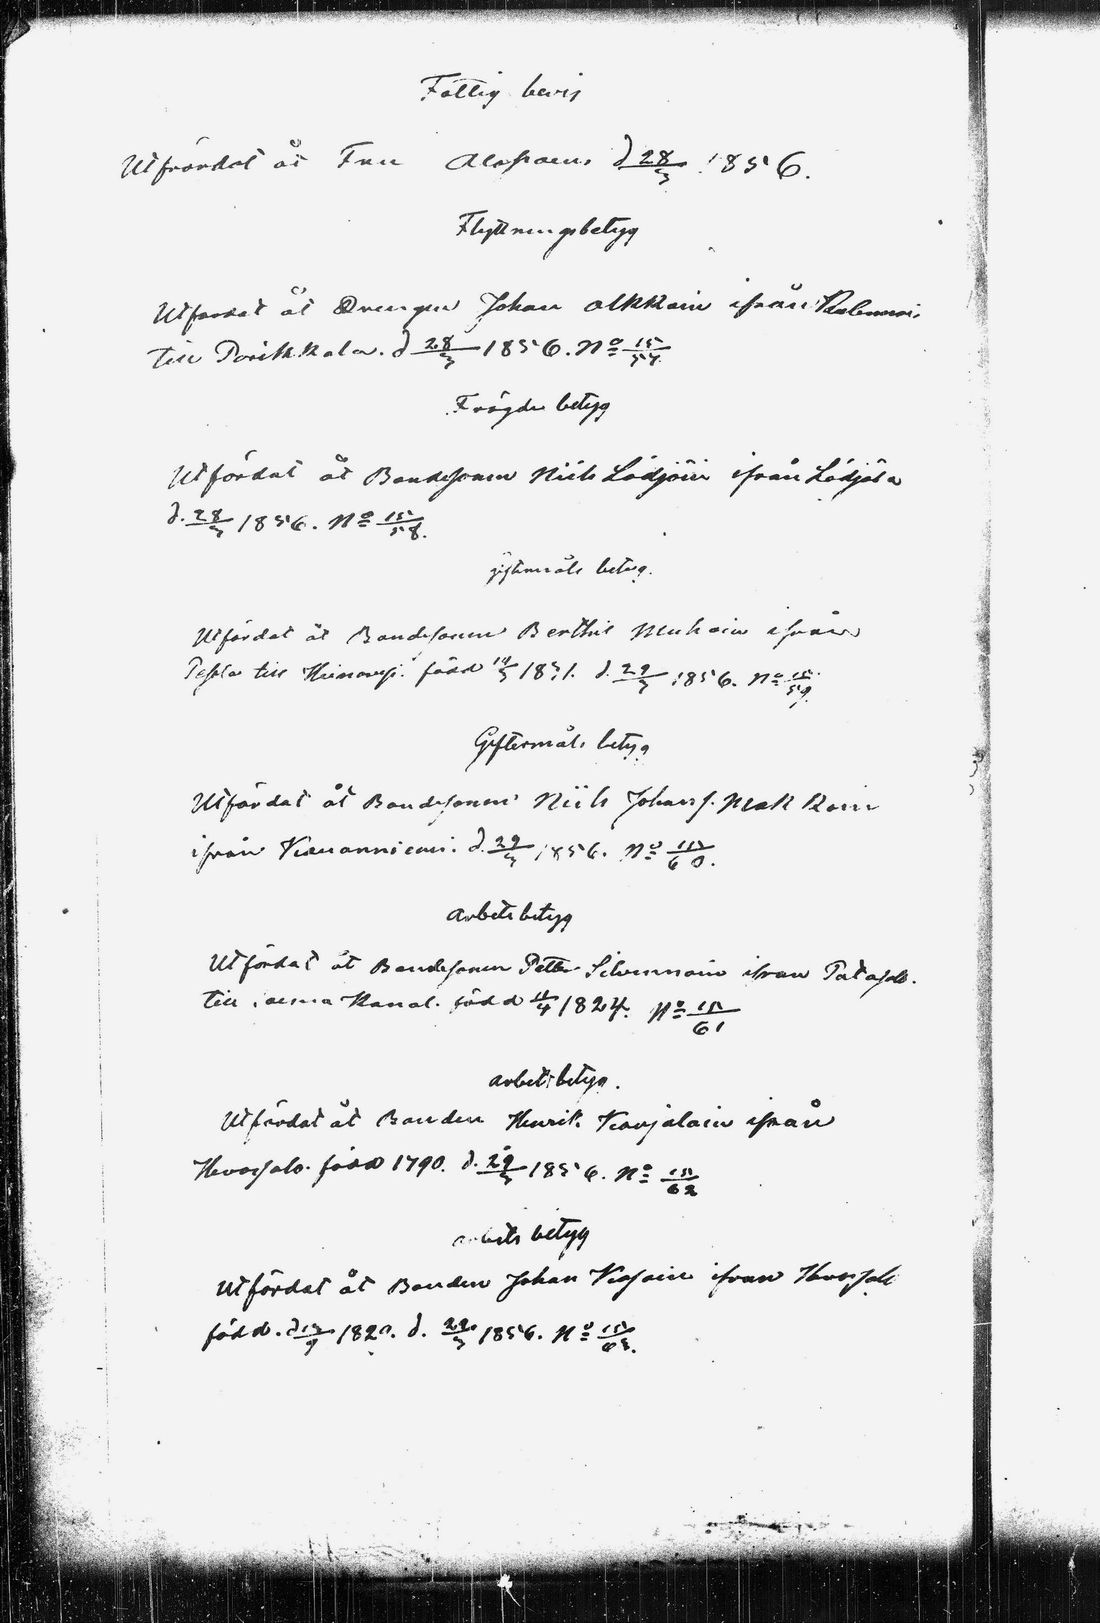 Fattig bevis
Utfärdat åt Fru Alopaeus d 28/3 1856.
Flyttningsbetyg
Utfärdat åt Drengen Johan Olkkoin ifrån
till Parikkala. d 28/3 1856. No 15/57.
Frägde betyg
Utfärdat åt Bondesonen Niils Lödjöin ifrån Lödjölä
d. 28/3 1856. No 15/58.
giftermåls betyg.
Utfärdat åt Bondesonen Berthil Muhoin ifrån
till född 1831. d. 29/3 1856. No 15/59.
Giftermåls betyg
Utfärdat åt Bondesonen Niils Johanss. Makkoin
ifrån Kauranniemi. d. 29/3 1856. No 15/60.
Arbetsbetyg
Utfärdat åt Bondesonen Petter Silvennoin ifrån
till Saima Kanal. född 1824. No 15/61
arbetsbetyg.
Utfärdat åt Bonden Henrik Karjalain ifrån
född 1790. d. 29/3 1856. No 15/62
arbets betyg
Utfärdat åt Bonden Johan ifrån
född. d. 29/3 1856. No 15/63.